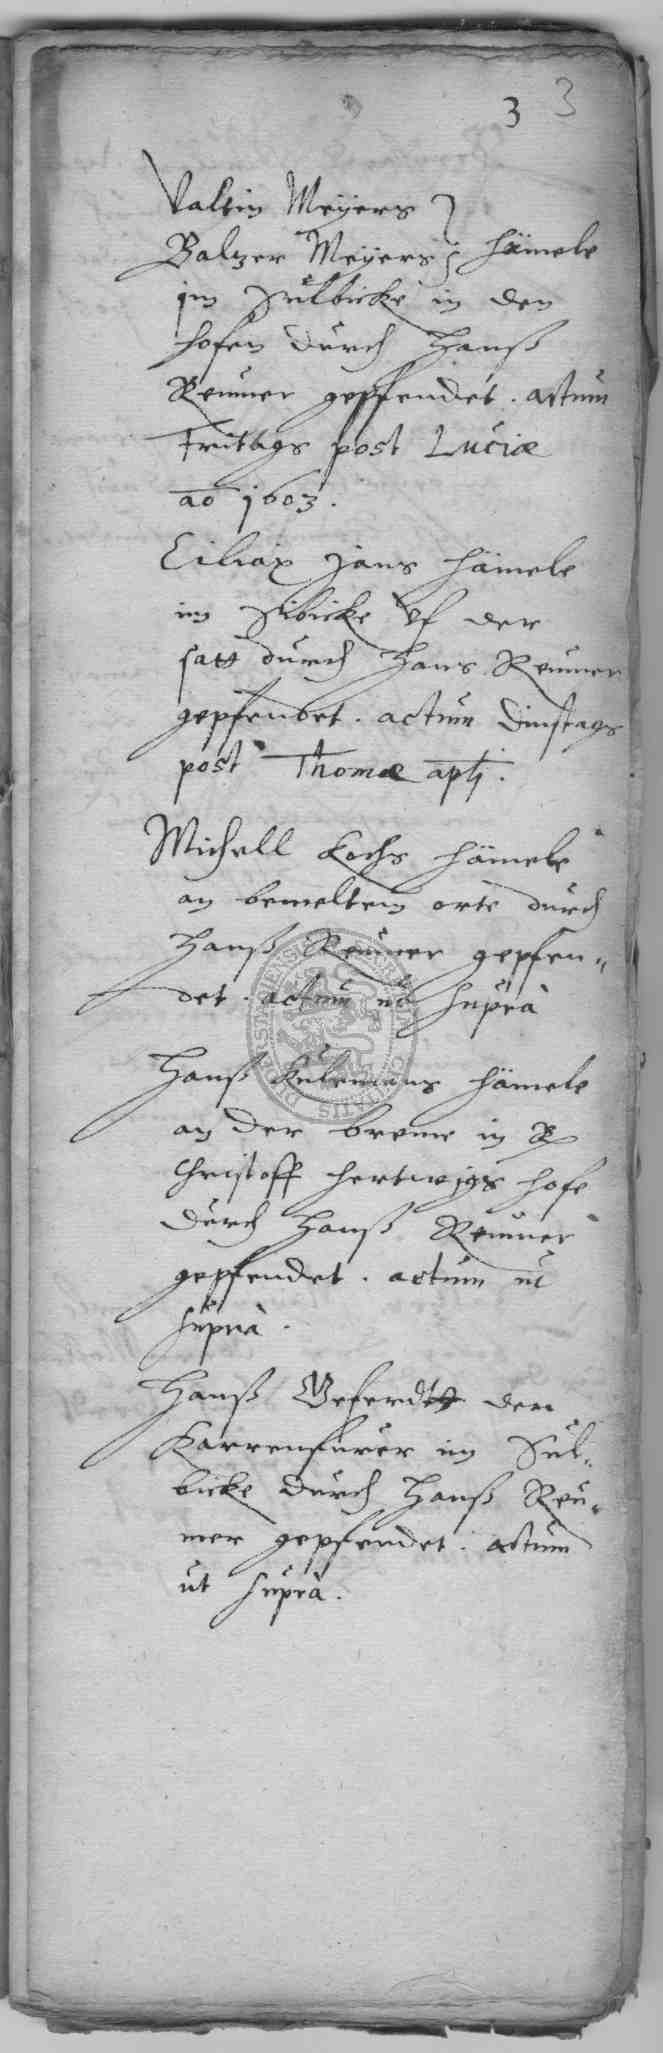 3 3
Valtin Meyers
Baltzer Meyers hämele
im Sulbicke in den
hofen durch Hanß
Reumer gepfendet. actum
Fritags post Luciæ
ao 1603.
Ciliax Jans hämele
im Silbicke uf der
satt durch Hans Reumer
gepfendet. actum Dinstags
post Thomæ apli.
Michell Kochs hämele
an bemeltem orte durch
Hanß Reumer gepfen-
det. actum ut supra
Hanß Kulemans hämele
an der breme in
Christoff Hertwigs hofe
durch Hanß Reumer
gepfendet. actum ut
supra.
Hanß der
Karrenfurer im Sul-
bicke durch Hanß Reu-
mer gepfendet. actum
ut supra.